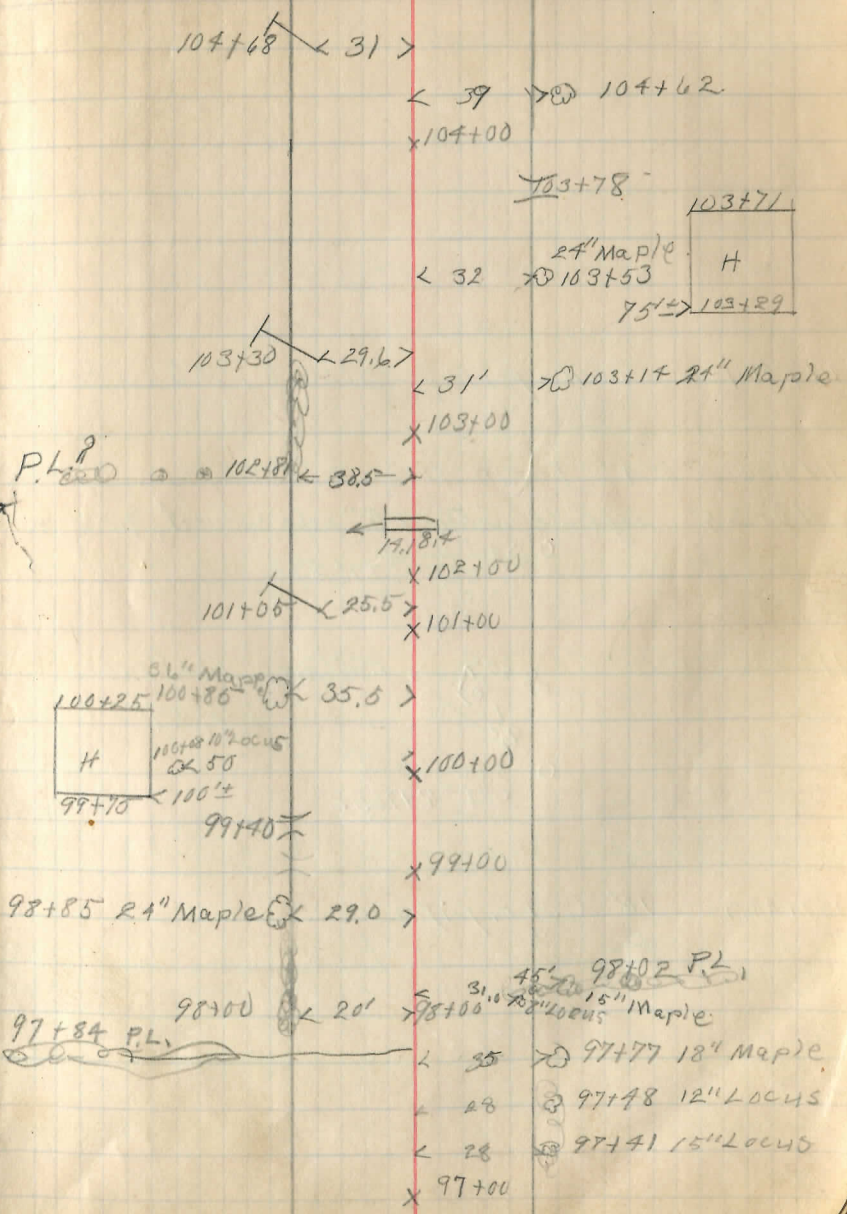 104+68 < 31 >
< 39 > 104+62
104+00
103+78
103+71
24" Maple
H
< 32 > 103+53
75'± > 103+29
103+30 < 29.6 >
< 31' > 103+14 24" Maple
103+00
P.L.?
102+81 < 38.5 >
102+00
101+05 < 25.5 >
101+00
100+25
< 35.5 >
H
100+08 10" Locus
< 50
100+00
99+75 < 100'±
99+40
99+00
98+85 24" Maple < 29.0 >
45' 98+02 P.L.
98+00 < 20' > 98+00
< 31.0 > 8" Locus 15" Maple
97+84 P.L.
< 35 > 97+77 18" Maple
< 28 97+48 12" Locus
< 28 97+41 15" Locus
97+00